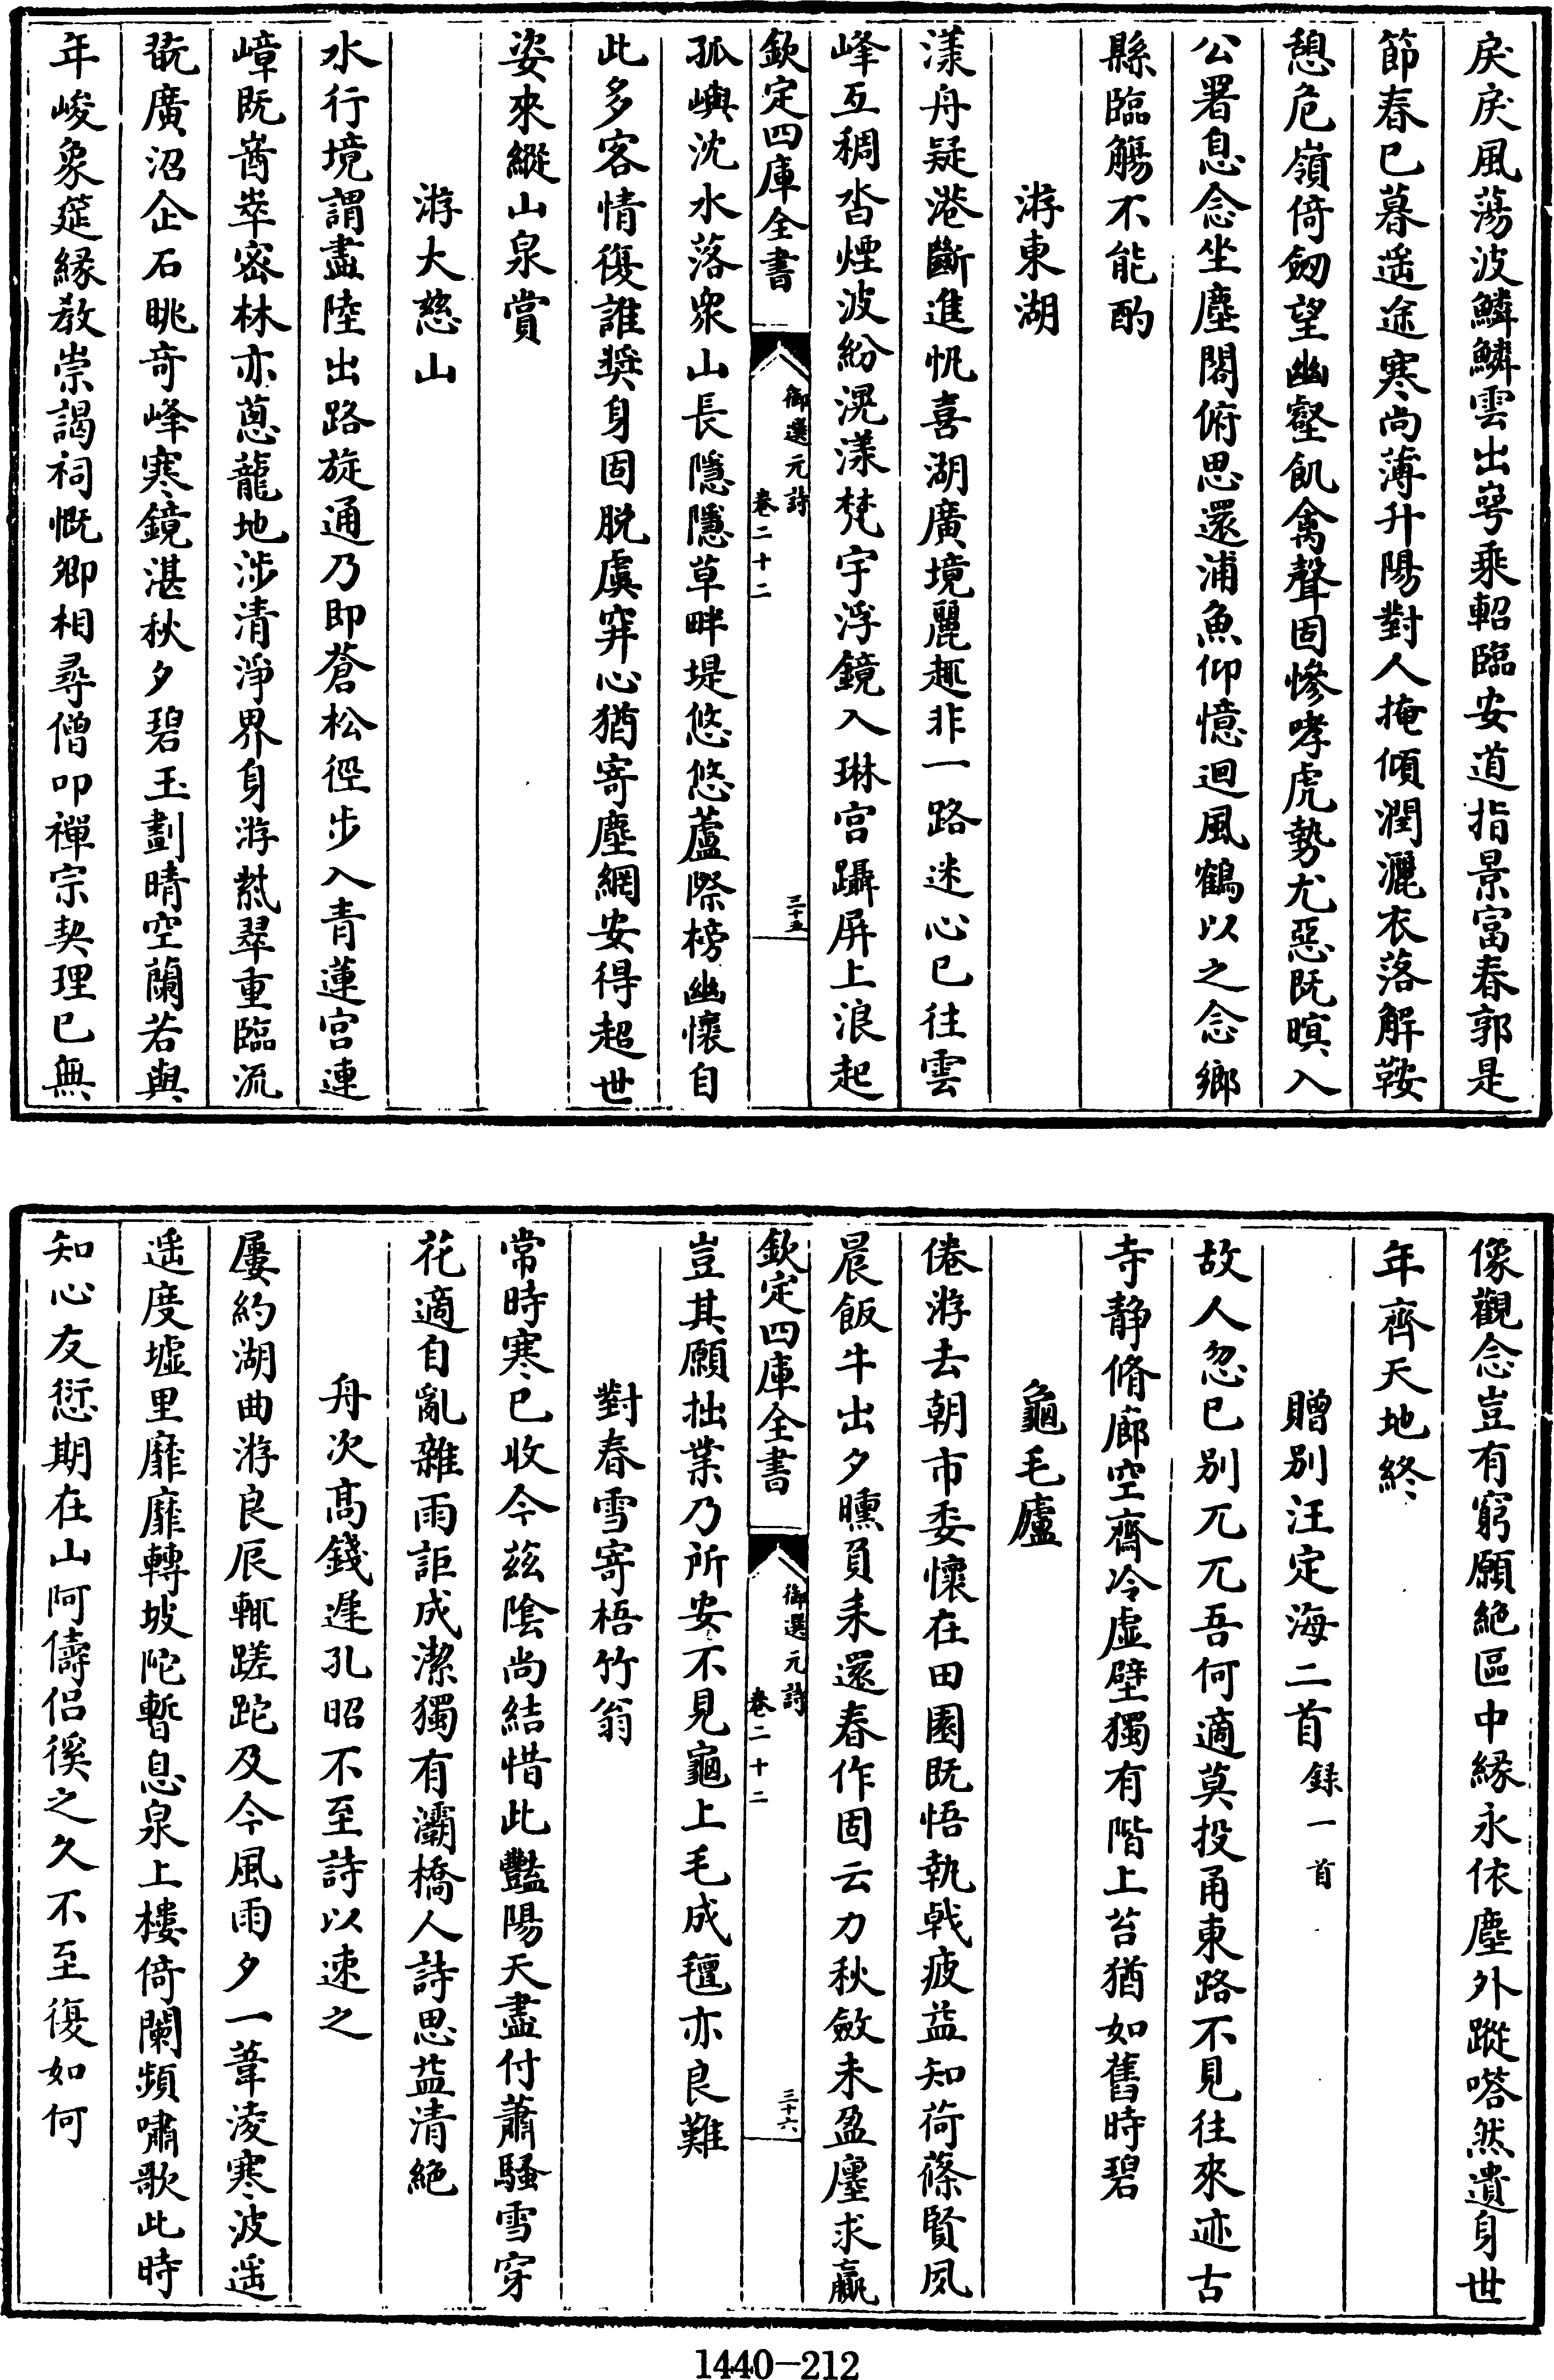 戾戾風蕩波鱗鱗雲出㟧乘軺臨安道指景富春郭是
節春已暮遥途寒尚薄升陽對人掩傾潤灑衣落解鞍
憩危嶺倚劒望幽壑飢禽聲固慘哮虎勢尤惡既暝入
公署息念坐塵閣俯思還浦魚仰憶迴風鶴以之念鄉
縣臨觴不能酌
游東湖
漾舟疑港斷進帆喜湖廣境麗趣非一路迷心已往雲
峰互稠沓煙波紛滉漾梵宇浮鏡入琳宫躡屏上浪起
欽定四庫全書
御選元詩
卷二十二
三十五
孤嶼沈水落衆山長隱隱草畔堤悠悠蘆際榜幽懷自
此多客情復誰奬身固脱虞穽心猶寄塵網安得超世
姿來縱山泉賞
游大慈山
水行境謂盡陸出路旋通乃即蒼松徑步入青蓮宫連
嶂既崷崒密林亦蔥蘢地涉清淨界身游爇翠重臨流
翫廣沼企石眺奇峰寒鏡湛秋夕碧玉劃晴空蘭若與
年峻象筵緣教崇謁祠慨卿相尋僧叩禪宗契理已無
像觀念豈有窮願絶區中緣永依塵外蹤嗒然遺身世
年齊天地終
贈别汪定海二首録一首
故人忽已别兀兀吾何適莫投甬東路不見往來迹古
寺静脩廊空齋冷虚壁獨有階上苔猶如舊時碧
龜毛廬
倦游去朝市委懷在田園既悟執戟疲益知荷蓧賢夙
晨飯牛出夕曛負耒還春作固云力秋斂未盈廛求贏
欽定四庫全書
御選元詩
卷二十二
三十六
豈其願拙業乃所安不見龜上毛成氊亦良難
對春雪寄梧竹翁
常時寒已收今兹陰尚結惜此豔陽天盡付蕭騷雪穿
花適自亂雜雨詎成潔獨有灞橋人詩思益清絶
舟次高錢遲孔昭不至詩以速之
屢約湖曲游良辰輒蹉跎及今風雨夕一葦淩寒波遥
遥度墟里靡靡轉坡陀暫息泉上樓倚闌頻嘯歌此時
知心友愆期在山阿儔侣徯之久不至復如何
1440-212